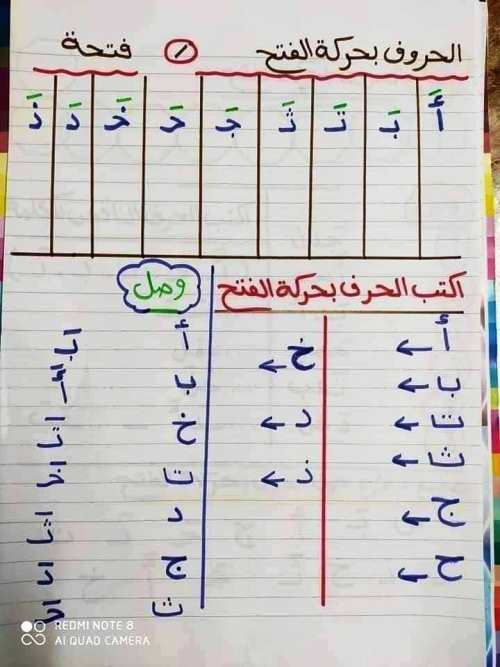 الحروف بحركة الفتح َ فتحة
أَ بَـ تَـ ثَـ جَـ حَـ خَـ دَ ذَ
اكتب الحرف بحركة الفتح
أ ←
ب ←
ت ←
ث ←
ج ←
ح ←
خ ←
د ←
ذ ←
وصل
أ
ب
خ
ت
د
ج
ث
REDMI NOTE 8
AI QUAD CAMERA